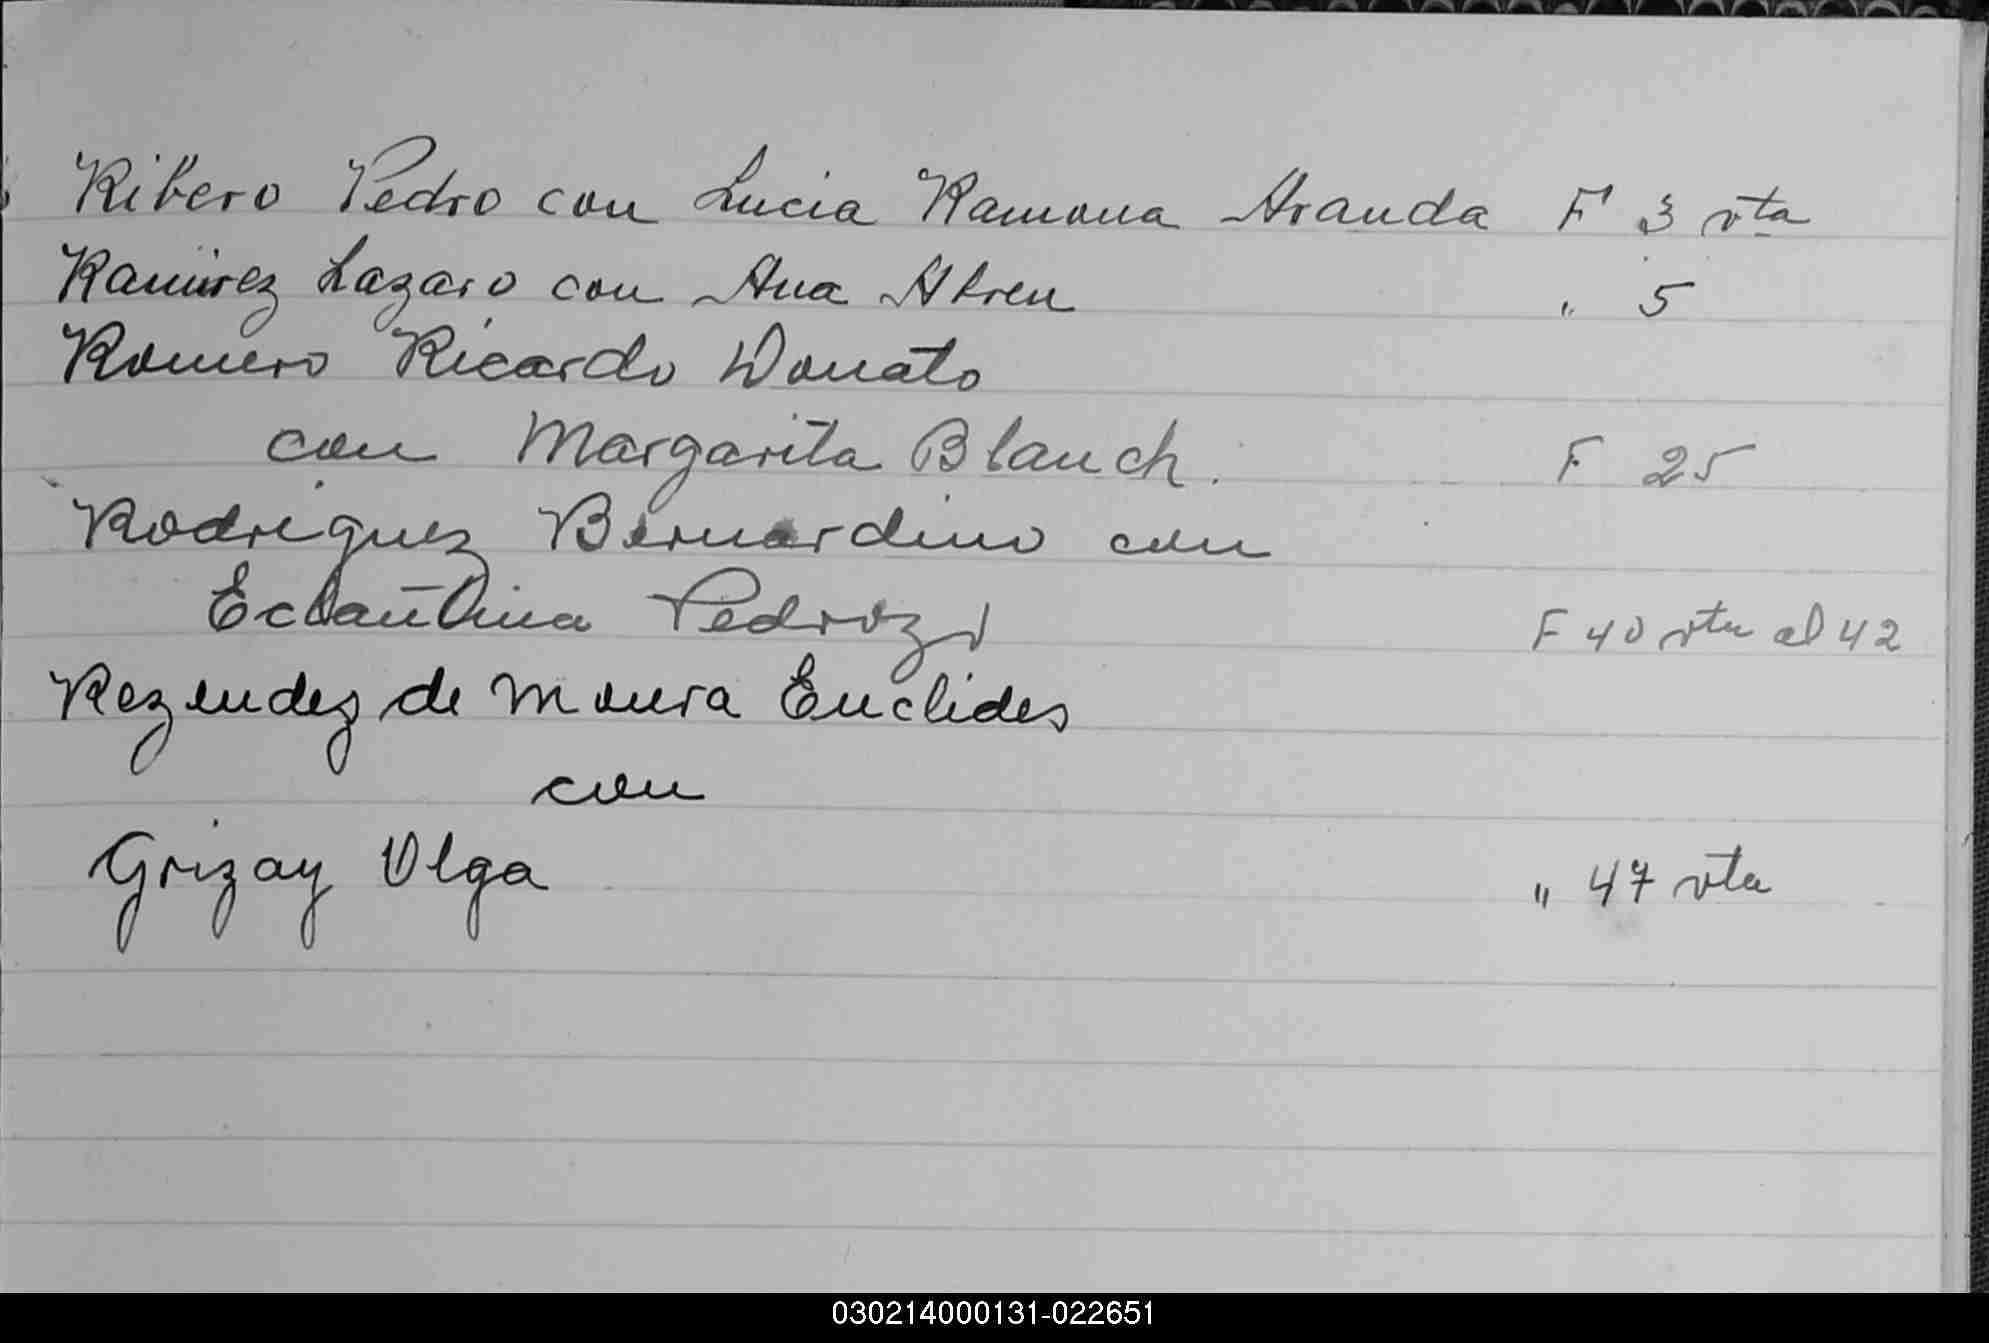 Ribero Pedro con Lucia Ramona Aranda F 3 vta
Ramirez Lazaro con Ana Abreu " 5
Romero Ricardo Donato
con Margarita Blanch. F 25
Rodriguez Bernardino con
Pedrozo F 40 vta al 42
Rezendez de Moura Euclides
con
Grizay Olga " 47 vta
030214000131-022651